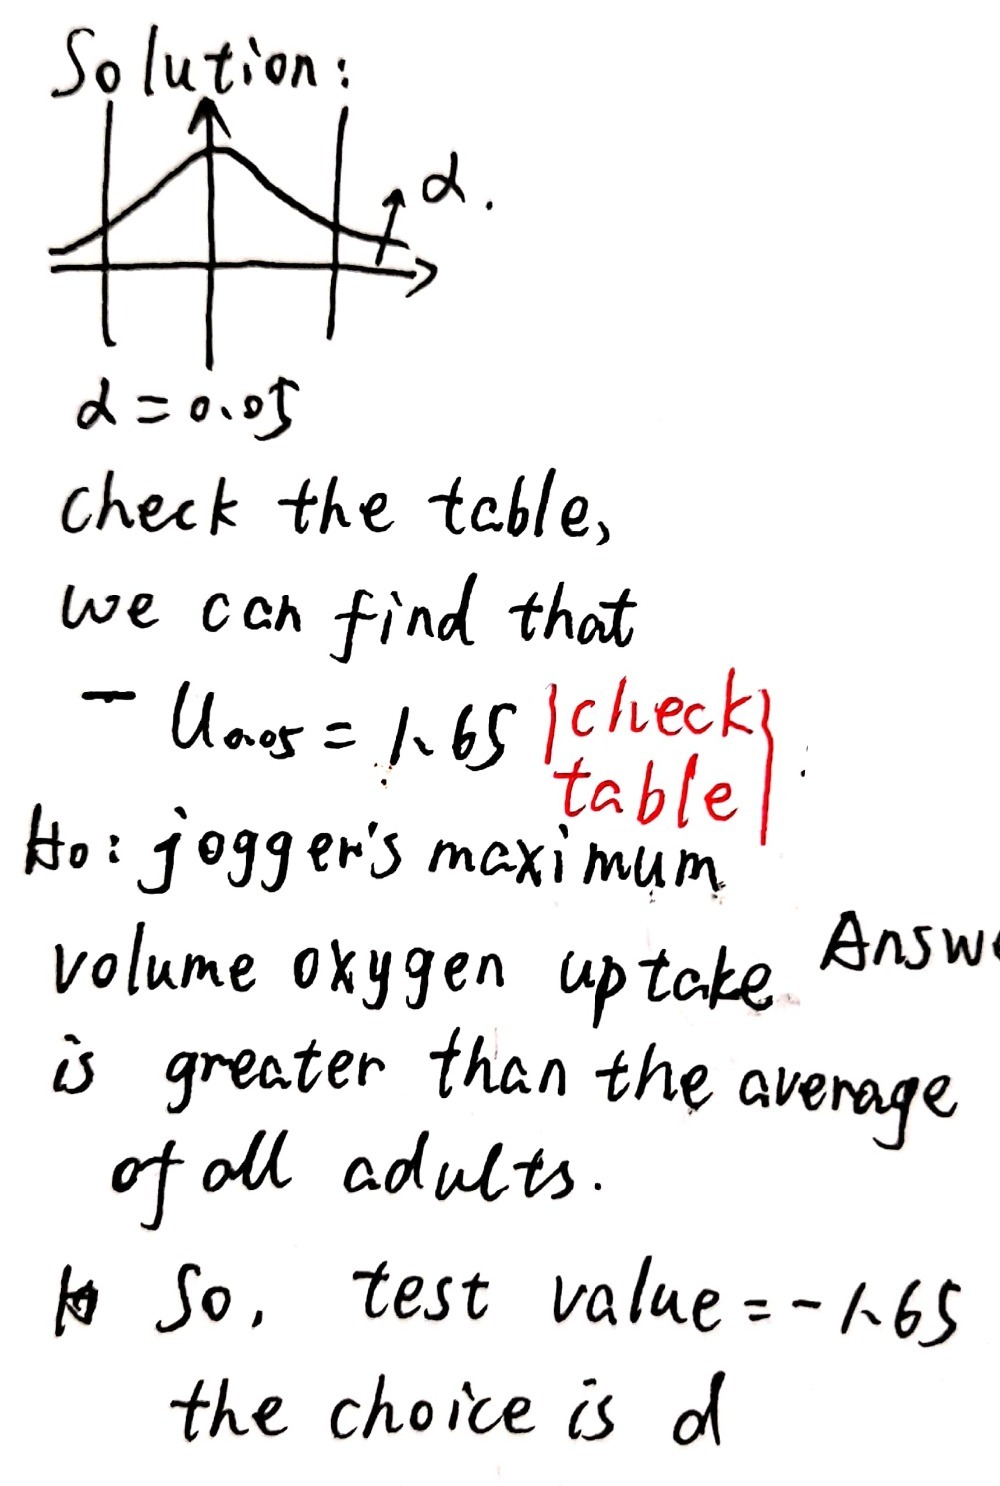 Solution:
α.
α = 0.05
check the table,
we can find that
- U0.05 = 1.65 {check
table}
Ho: jogger's maximum
volume oxygen uptake Answe
is greater than the average
of all adults.
So, test value = -1.65
the choice is d